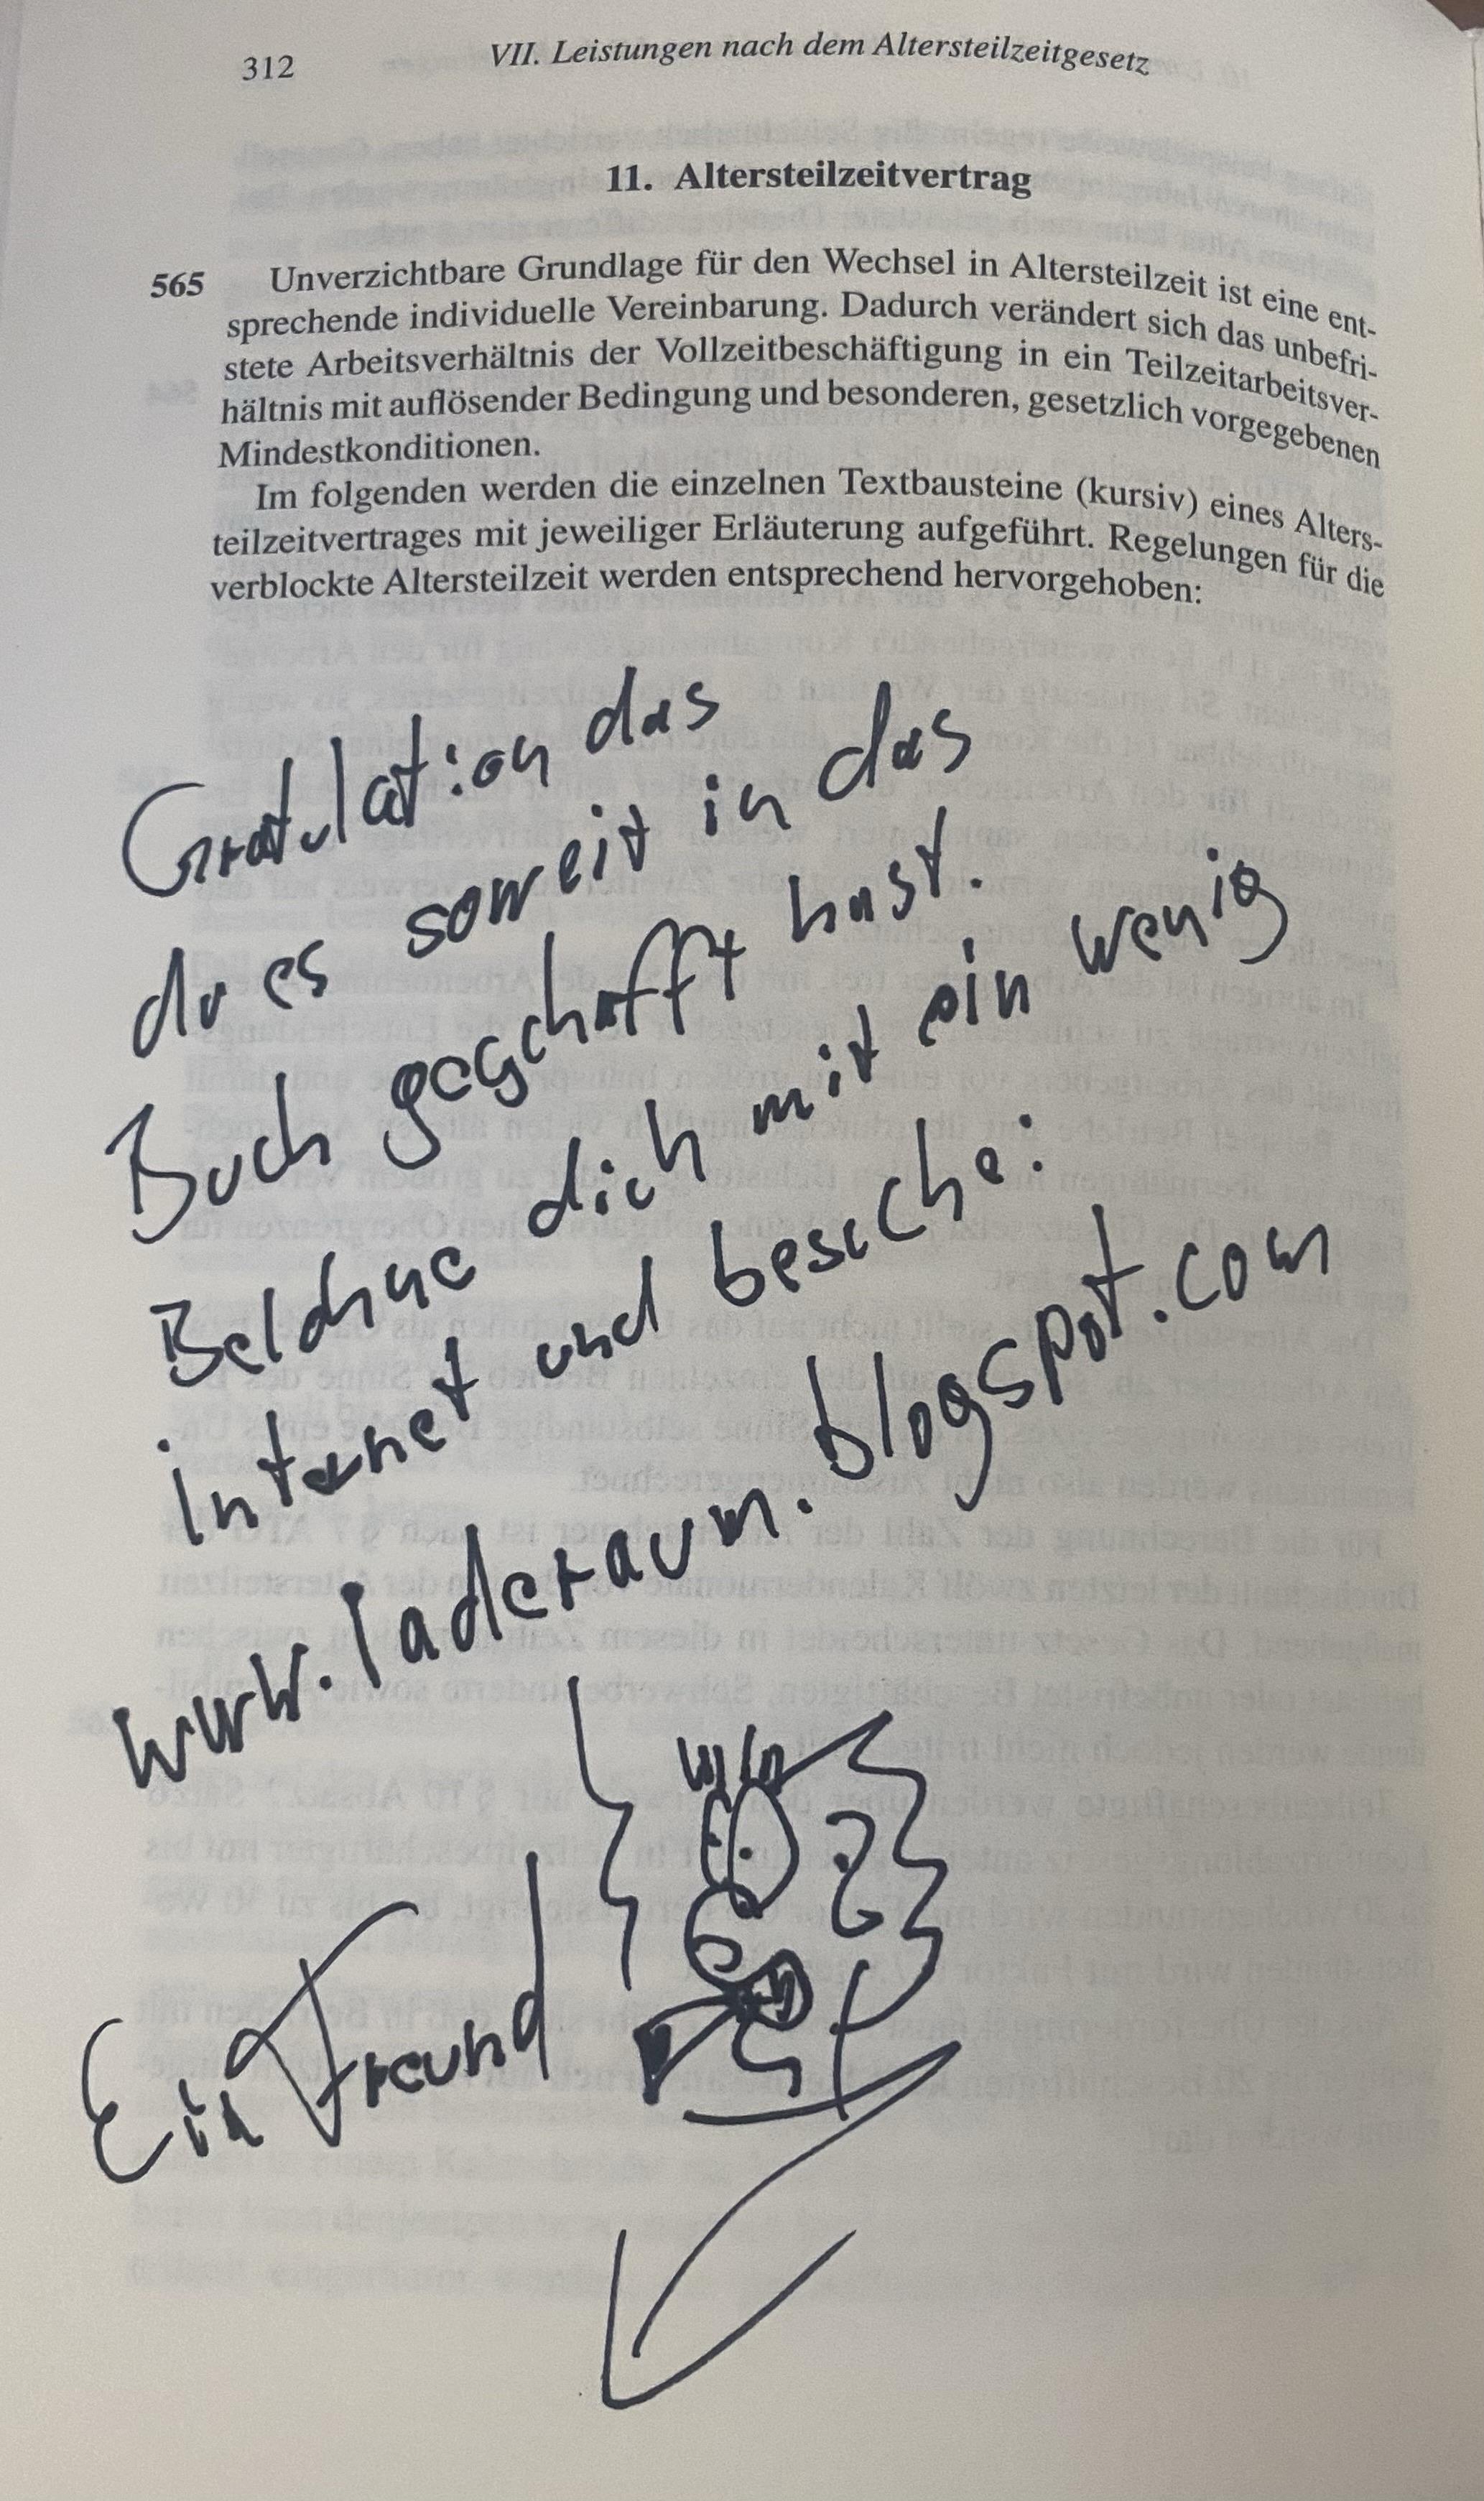 312
VII. Leistungen nach dem Altersteilzeitgesetz
11. Altersteilzeitvertrag
565 Unverzichtbare Grundlage für den Wechsel in Altersteilzeit ist eine ent-
sprechende individuelle Vereinbarung. Dadurch verändert sich das unbefri-
stete Arbeitsverhältnis der Vollzeitbeschäftigung in ein Teilzeitarbeitsver-
hältnis mit auflösender Bedingung und besonderen, gesetzlich vorgegebenen
Mindestkonditionen.
Im folgenden werden die einzelnen Textbausteine (kursiv) eines Alters-
teilzeitvertrages mit jeweiliger Erläuterung aufgeführt. Regelungen für die
verblockte Altersteilzeit werden entsprechend hervorgehoben:
Gratulation das
du es soweit in das
Buch geschafft hast.
Belohne dich mit ein wenig
internet und besuche:
www.laderaum.blogspot.com
Ein Freund